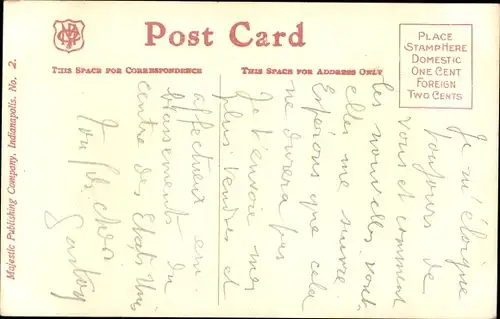 Post Card
THIS SPACE FOR CORRESPONDENCE
THIS SPACE FOR ADDRESS ONLY
PLACE
STAMP HERE
DOMESTIC
ONE CENT
FOREIGN
TWO CENTS
Majestic Publishing Company, Indianapolis. No. 2.
Je m'éloigne
toujours de
vous et comment
les nouvelles vont
elles me suivre.
Espérons que cela
ne durera pas
Je t'envoie mes
plus tendres et
affectueux em
brassements du
centre des Etats Unis
Ton fils
Gaston